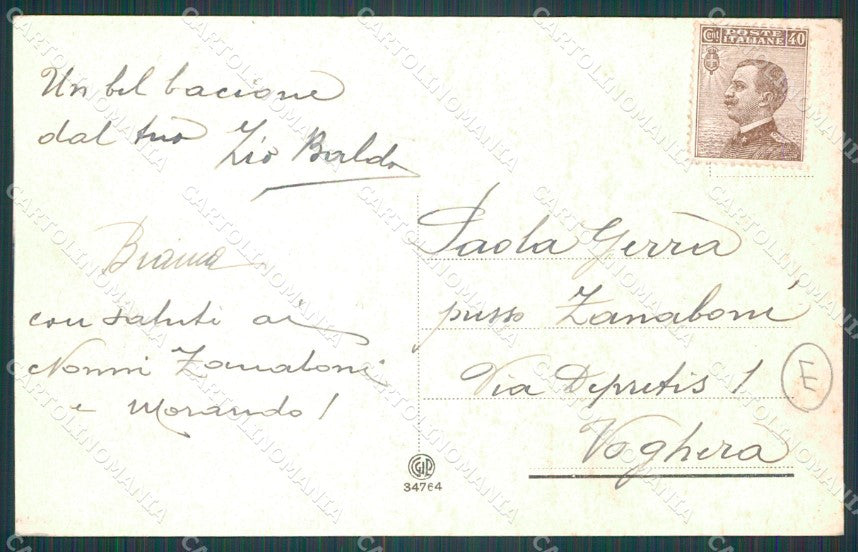 Un bel bacione
dal tuo Zio Baldo
Bruna
con saluti ai
Nonni Zanaboni
e Morando!
Cent. POSTE ITALIANE 40
Paola Gerra
presso Zanaboni
Via Depretis 1
Voghera
E
34764
CARTOLINOMANIA